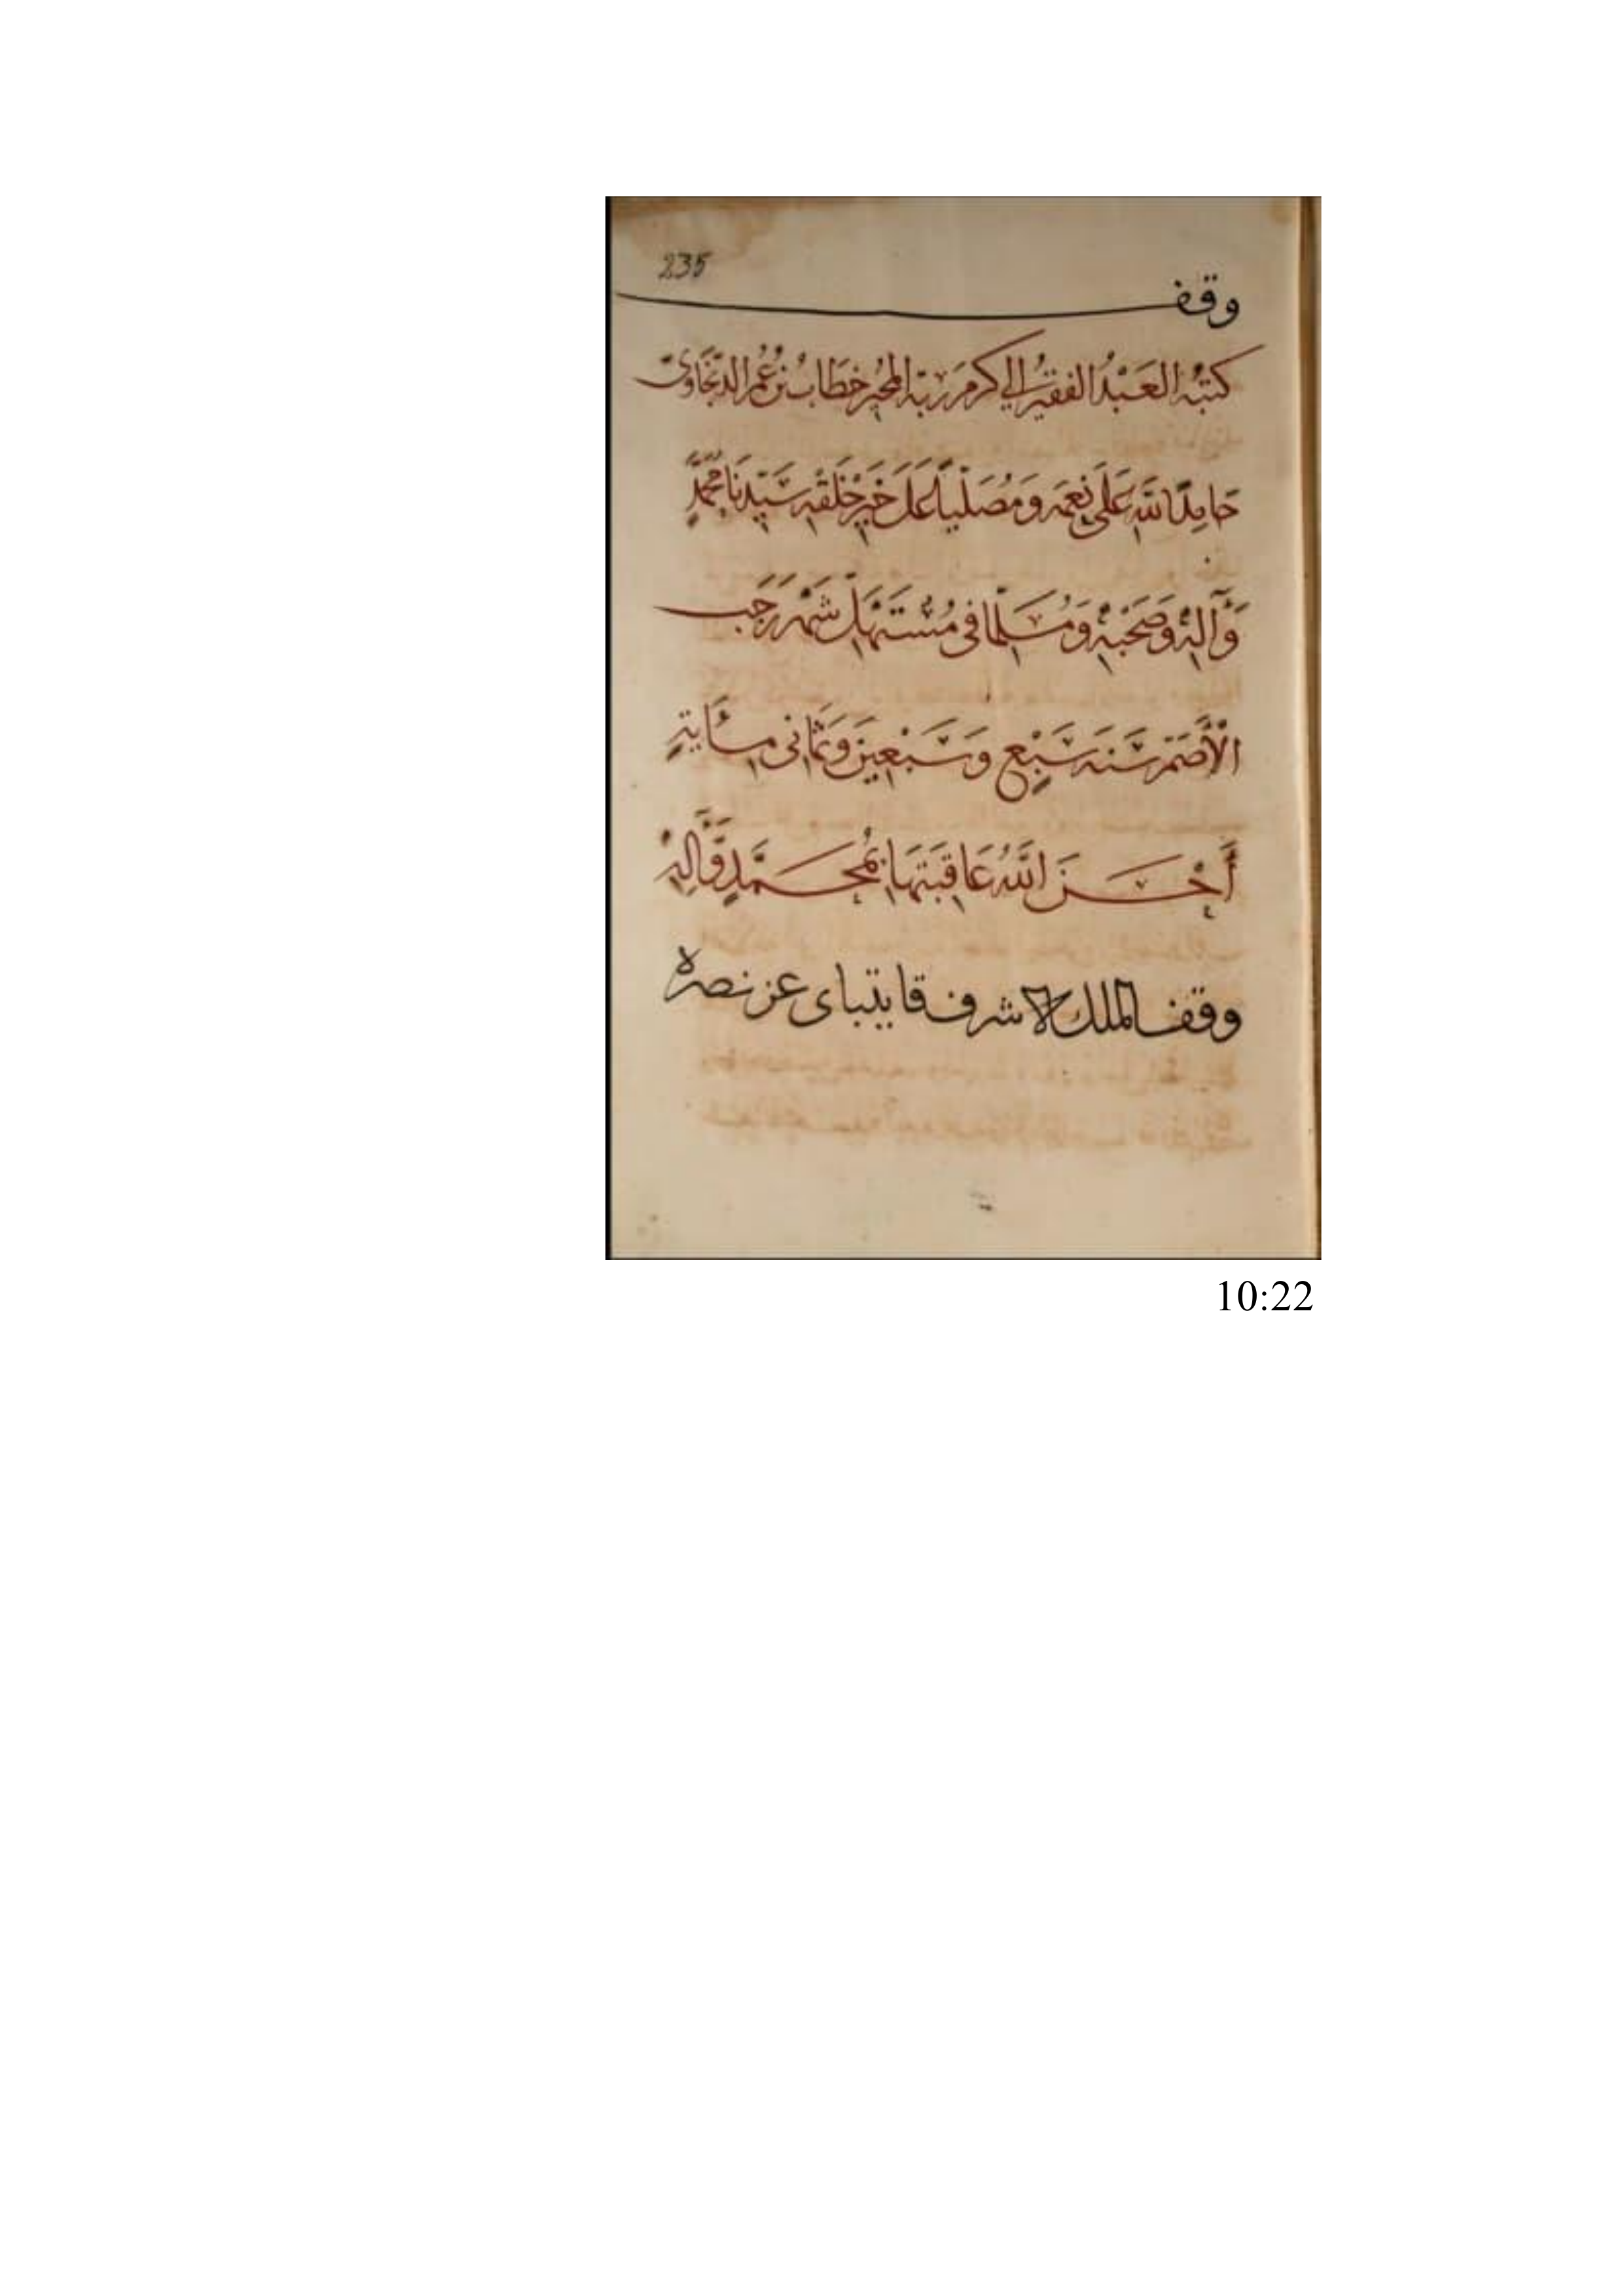 235
وقف
كتبه العبد الفقير الي كرم ربه المجير خطاب بن عمر الدنجاوي
حامدًا لله على نعمه ومصليًا على خير خلقه سيدنا محمد
وآله وصحبه ومسلما في مستهل شهر رجب
الأصم سنة سبع وسبعين وثماني مائة
أحسن الله عاقبتها بمحمد وآله
وقف الملك الاشرف قايتباى عز نصره
10:22